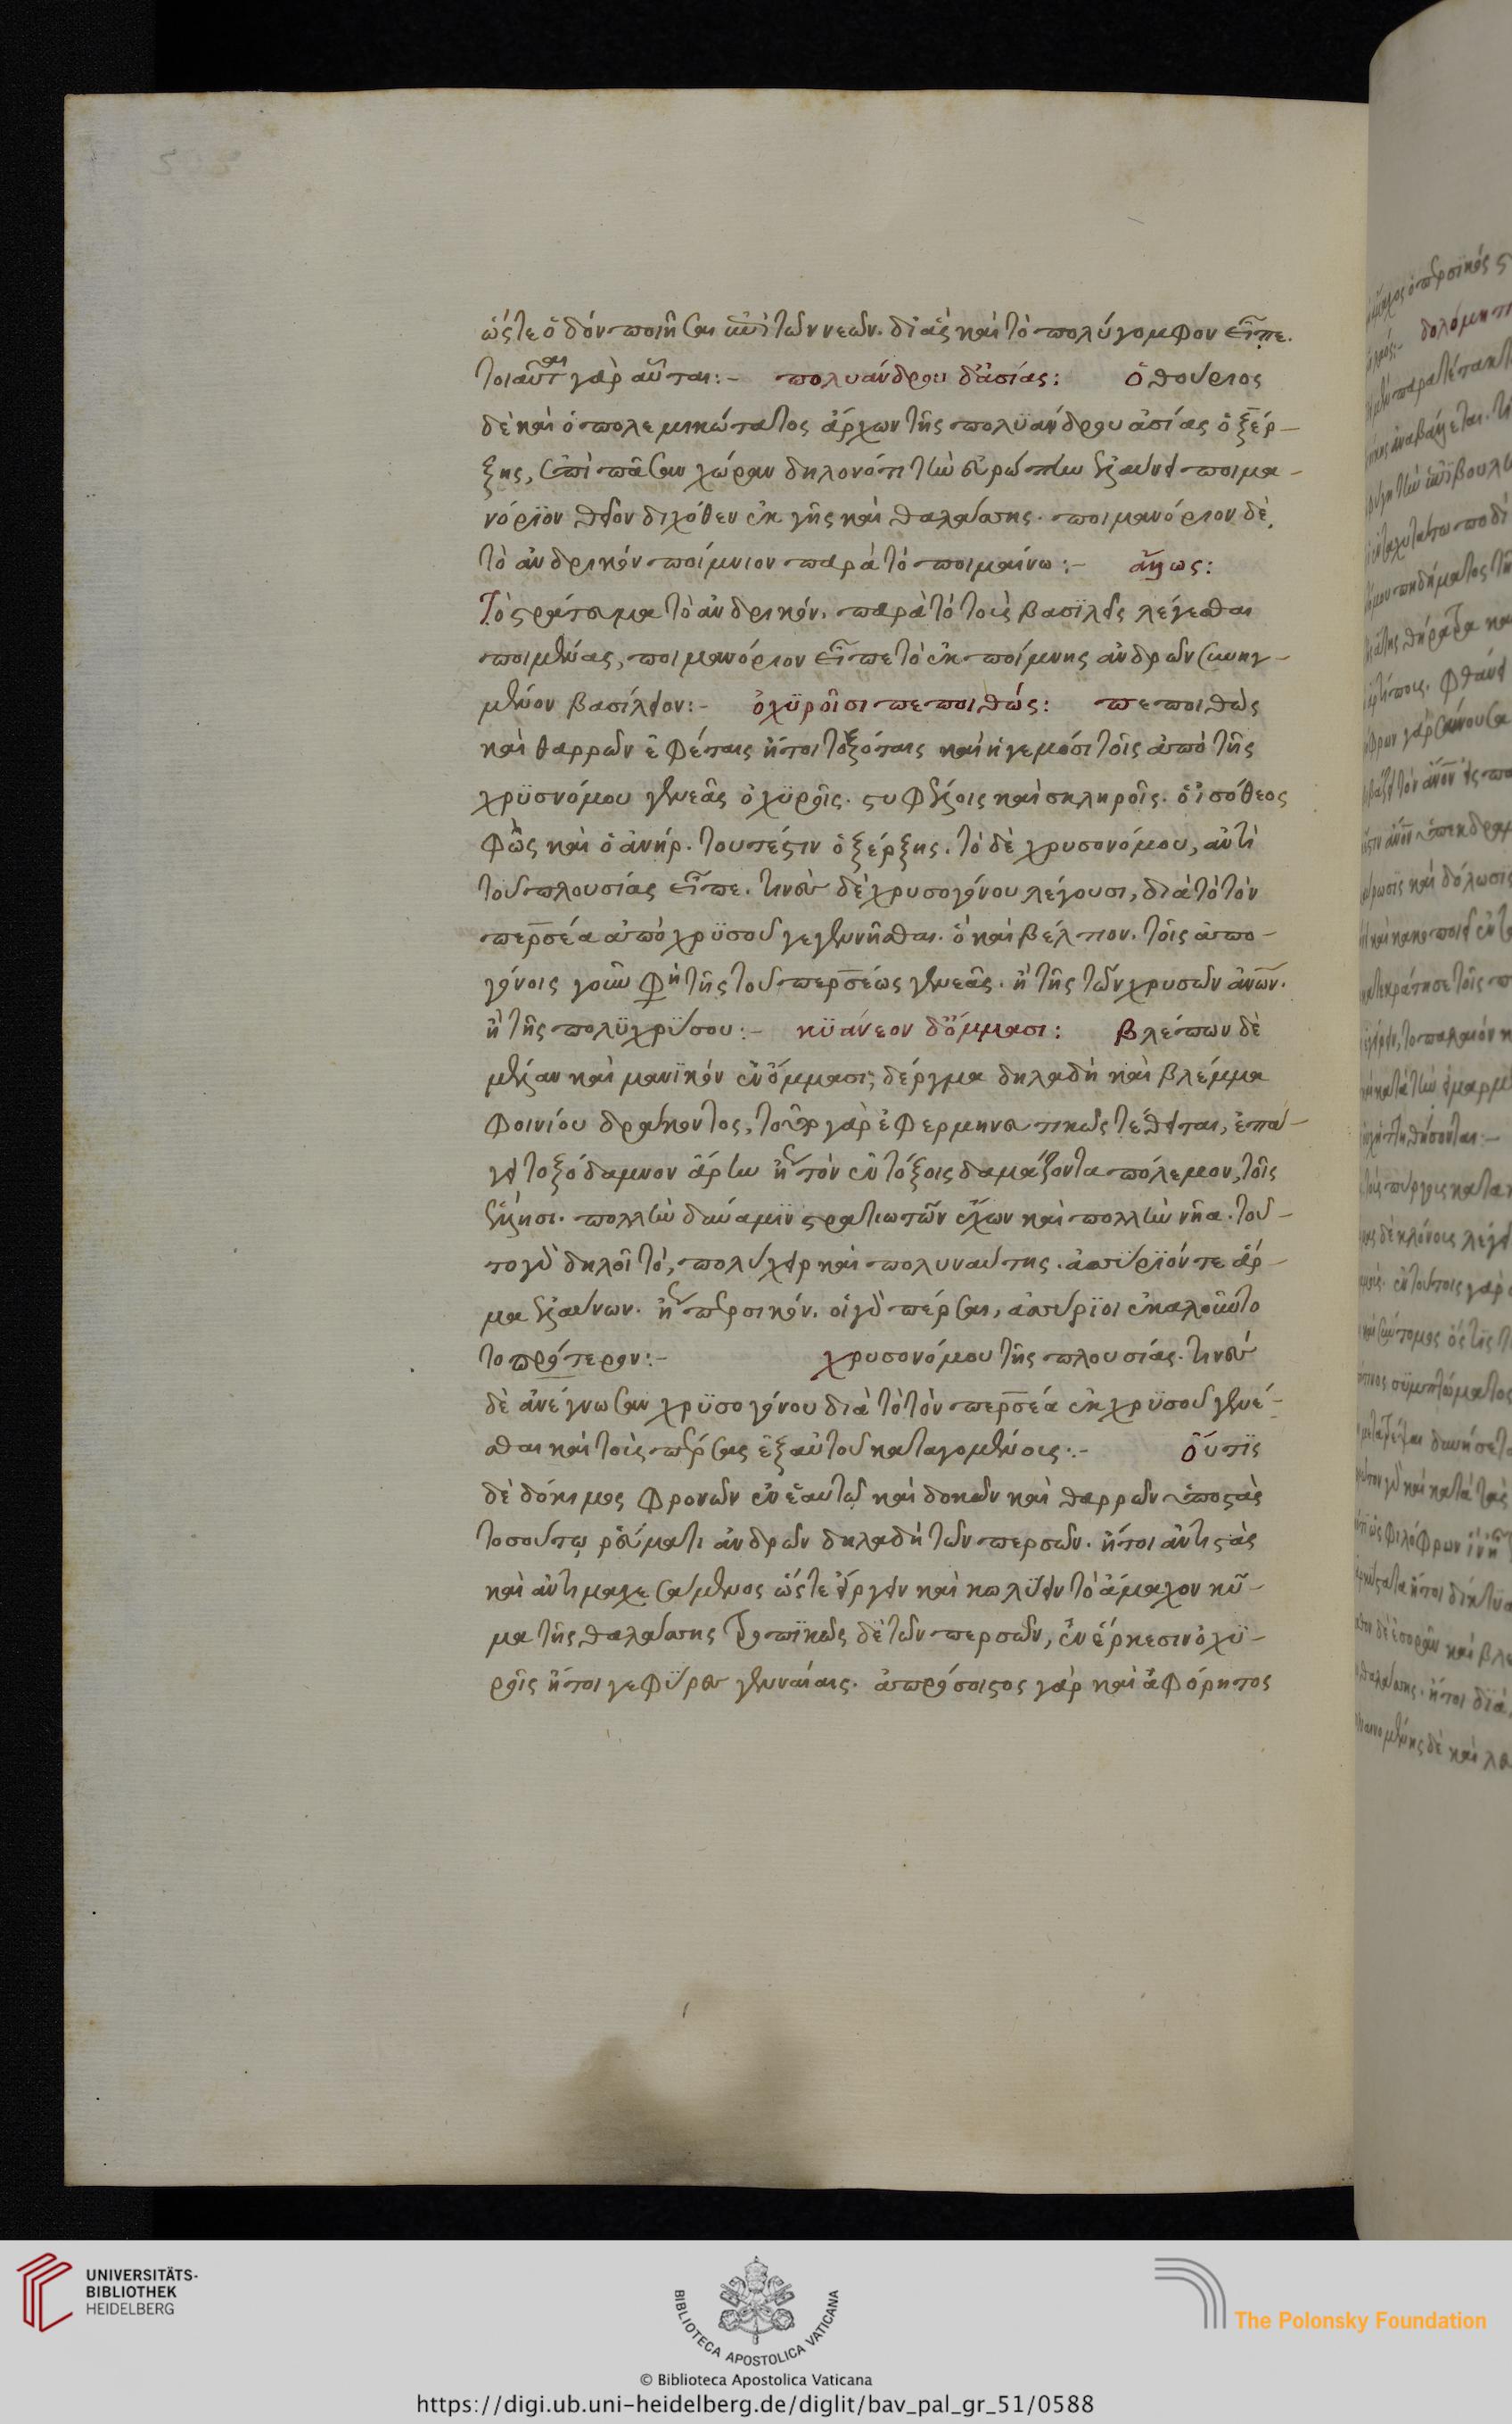 ὥστε ὁδὸν ποιῆσαι ἐπὶ τῶν νεῶν. διὰς καὶ τὸ πολύγομφον εἶπε.
τοιαῦται γὰρ αὗται:- πολυάνδρου δ᾽ἀσίας: ὁ θούριος
δὲ καὶ ὁ πολεμικώτατος ἄρχων τῆς πολυάνδρου ἀσίας ὁ ξέρ-
ξης, ἐπὶ πᾶσαν χώραν δηλονότι τὴν εὐρώπην ἐλαύνει ποιμα-
νόριον θεῖον διχόθεν ἐκ γῆς καὶ θαλάσσης. ποιμανόριον δὲ
τὸ ἀνδρικὸν ποίμνιον παρὰ τὸ ποιμαίνω:- ἄλλως:
Τὸ στράτευμα τὸ ἀνδρικόν. παρὰ τὸ τοὺς βασιλεῖς λέγεσθαι
ποιμένας, ποιμανόριον εἶπε τὸ ἐκ ποίμνης ἀνδρῶν συνηγ-
μένον βασίλειον:- ὀχυροῖσι πεποιθώς: πεποιθὼς
καὶ θαρρῶν ἐφέταις ἤτοι τοξόταις καὶ ἡγεμόσι τοῖς ἀπὸ τῆς
χρυσνόμου γενεᾶς ὀχυροῖς. στυφελοῖς καὶ σκληροῖς. ὁ ἰσόθεος
φὼς καὶ ὁ ἀνήρ. τουτέστιν ὁ ξέρξης. τὸ δὲ χρυσονόμου, ἀντὶ
τοῦ πλουσίας εἶπε. τινὲς δὲ χρυσογόνου λέγουσι, διὰ τὸ τὸν
περσέα ἀπὸ χρυσοῦ γεγεννῆσθαι. ὃ καὶ βέλτιον. τοῖς ἀπο-
γόνοις γοῦν φη τῆς τοῦ περσέως γενεᾶς. ἢ τῆς τῶν χρυσῶν ἀνων.
ἢ τῆς πολυχρύσου:- κυάνεον δ᾽ὄμμασι: βλέπων δὲ
μέλαν καὶ μανικὸν ἐν ὄμμασι, δέργμα δηλαδὴ καὶ βλέμμα
φοινίου δράκοντος, τοῦτο γὰρ ἐφερμηνευτικῶς τέθειται, ἐπά-
γει τοξόδαμνον ἄρην ἢ τὸν ἐν τόξοις δαμάζοντα πόλεμον, τοῖς
ἕλλησι. πολλὴν δύναμιν στρατιωτῶν ἔχων καὶ πολλὴν νῆα. τοῦ-
το γὰρ δηλοῖ τό, πολύχειρ καὶ πολυναύτης. ἀσύριόν τε ἅρ-
μα ἐλαύνων. ἢ περσικόν. οἱ γὰρ πέρσαι, ἀσύριοι ἐκαλοῦντο
τοπρότερον:- χρυσονόμου τῆς πλουσίας. τινὲς
δὲ ἀνέγνωσαν χρυσογόνου διὰ τὸ τὸν περσέα ἐκ χρυσοῦ γενέ-
σθαι καὶ τοὺς πέρσας ἐξ αὐτοῦ καταγομένους:- ὄυτις
δὲ δόκιμος φρονῶν ἐν ἑαυτῷ καὶ δοκῶν καὶ θαρρῶν ὑποστὰς
τοσούτῳ ῥεύματι ἀνδρῶν δηλαδὴ τῶν περσῶν. ἤτοι ἀντιστὰς
καὶ ἀντιμαχεσάμενος ὥστε εἴργειν καὶ κωλύειν τὸ ἄμαχον κῦ-
μα τῆς θαλάσσης τροπικῶς δὲ τῶν περσῶν, ἐν ἕρκεσιν ὀχυ-
ροῖς ἤτοι γεφύραις γενναίαις. ἀπρόσοιστος γὰρ καὶ ἀφόρητος
UNIVERSITÄTS-
BIBLIOTHEK
HEIDELBERG
BIBLIOTECA APOSTOLICA VATICANA
The Polonsky Foundation
© Biblioteca Apostolica Vaticana
https://digi.ub.uni-heidelberg.de/diglit/bav_pal_gr_51/0588